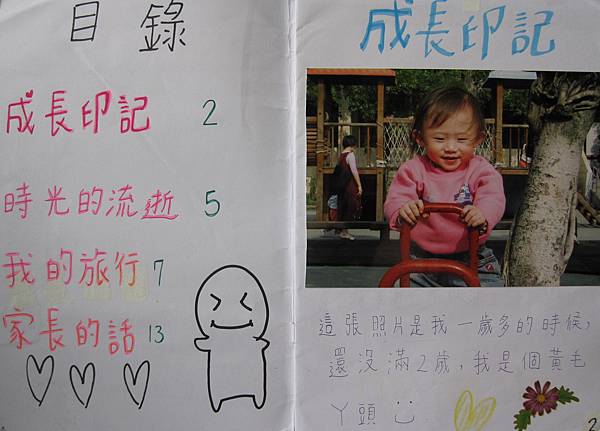 目錄
成長印記 2
時光的流逝 5
我的旅行 7
家長的話 13
成長印記
這張照片是我一歲多的時候,
還沒滿2歲,我是個黃毛
丫頭
2